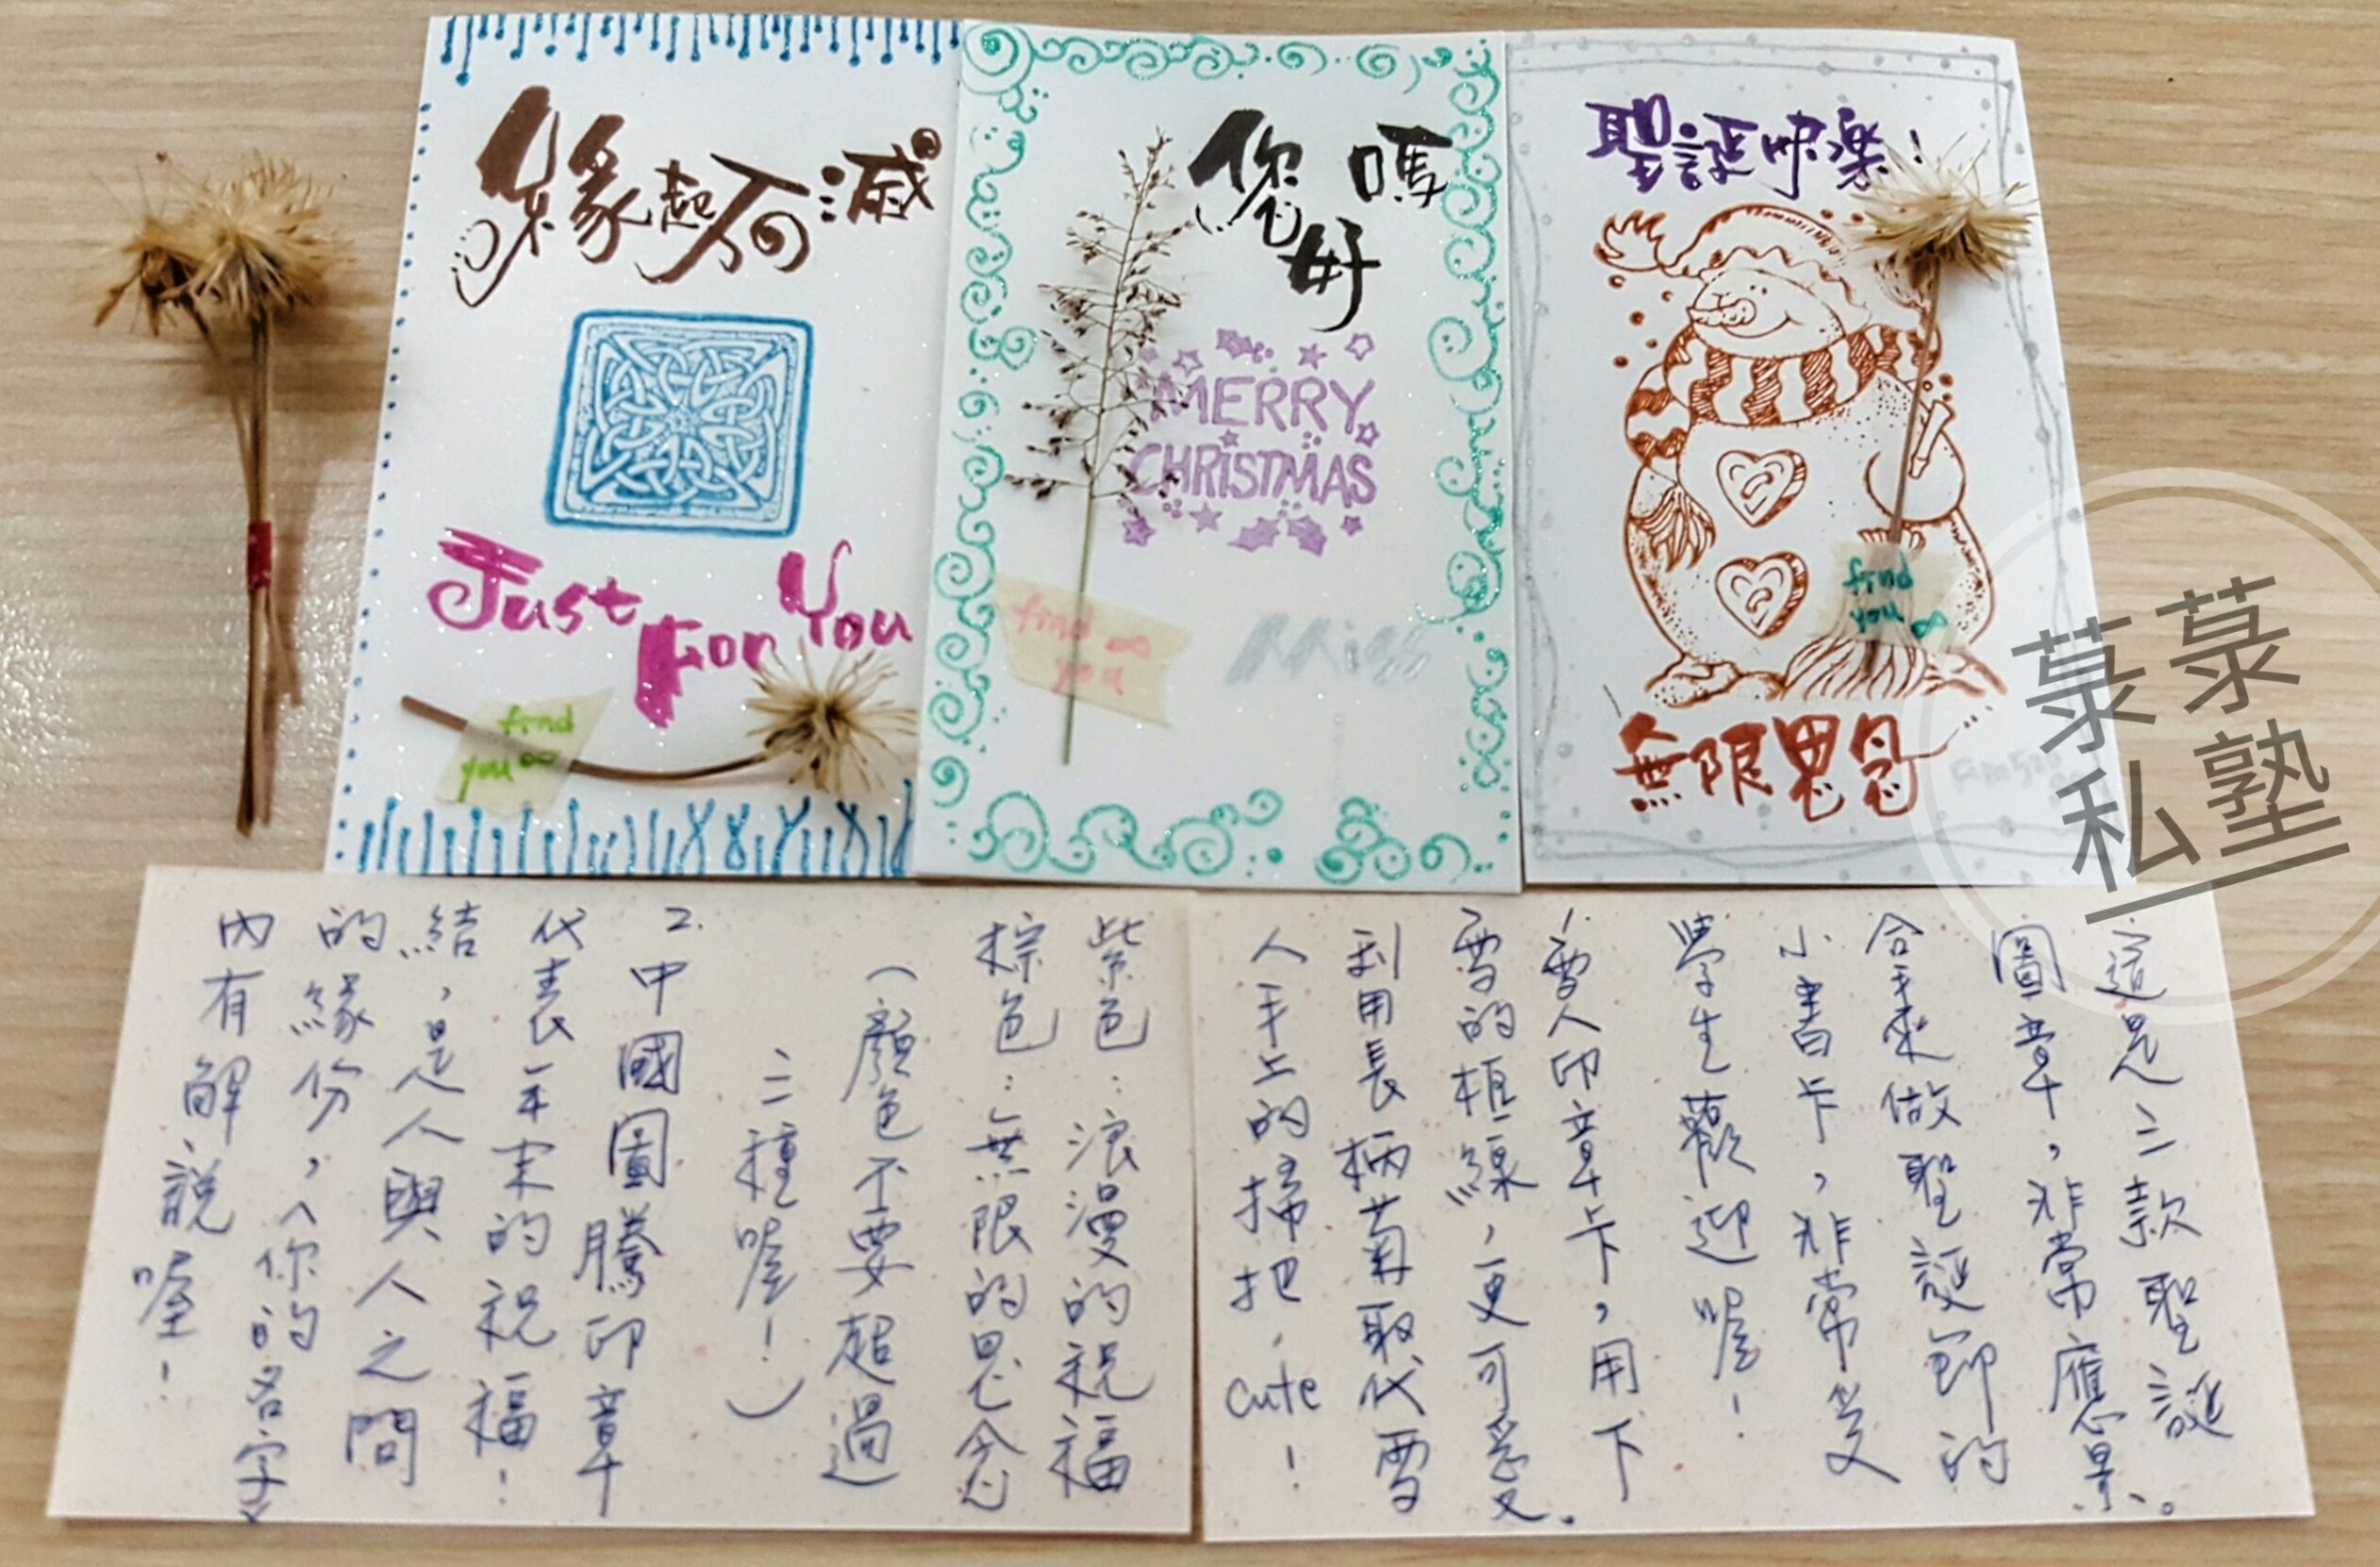 緣起不滅
Just For You
find
you ∞
您好嗎
MERRY
CHRISTMAS
find ∞
you
Miss
聖誕快樂!
find
you ∞
無限思念
菉菉
私塾
這是三款聖誕
圖章,非常應景。
合手來做聖誕節的
小書卡,非常受
學生歡迎喔!
1.雪人印章卡,用下
雪的框線,更可愛。
利用長柄菊取代雪
人手上的掃把,cute!
紫色:浪漫的祝福
棕色:無限的思念
(顏色不要超過
三種喔!)
2.中國圖騰印章
代表年末的祝福!
結,是人與人之間
的緣份,<你的名字>
內有解說喔!